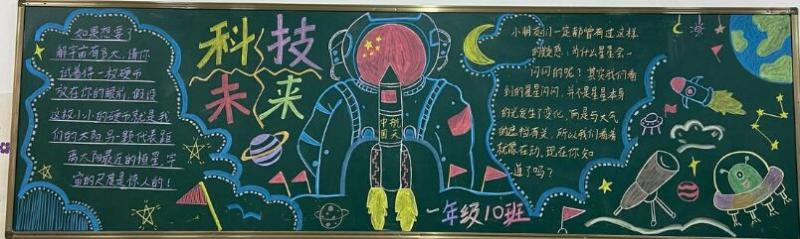 如果想要了
解宇宙有多大，请你
试着将一枚硬币
放在你的眼前，假设
这枚小小的硬币就是我
们的太阳，另一颗代表距
离太阳最近的恒星，宇
宙的尺度是惊人的！
科技
未来
中国
航天
一年级10班
小朋友们一定都曾有过这样
的疑惑：为什么星星会一
闪闪的呢？其实我们看
到的星星闪闪，并不是星星本身
的光发生了变化，而是与大气
的遮挡有关，所以我们看着
就像在动，现在你知
道了吗？